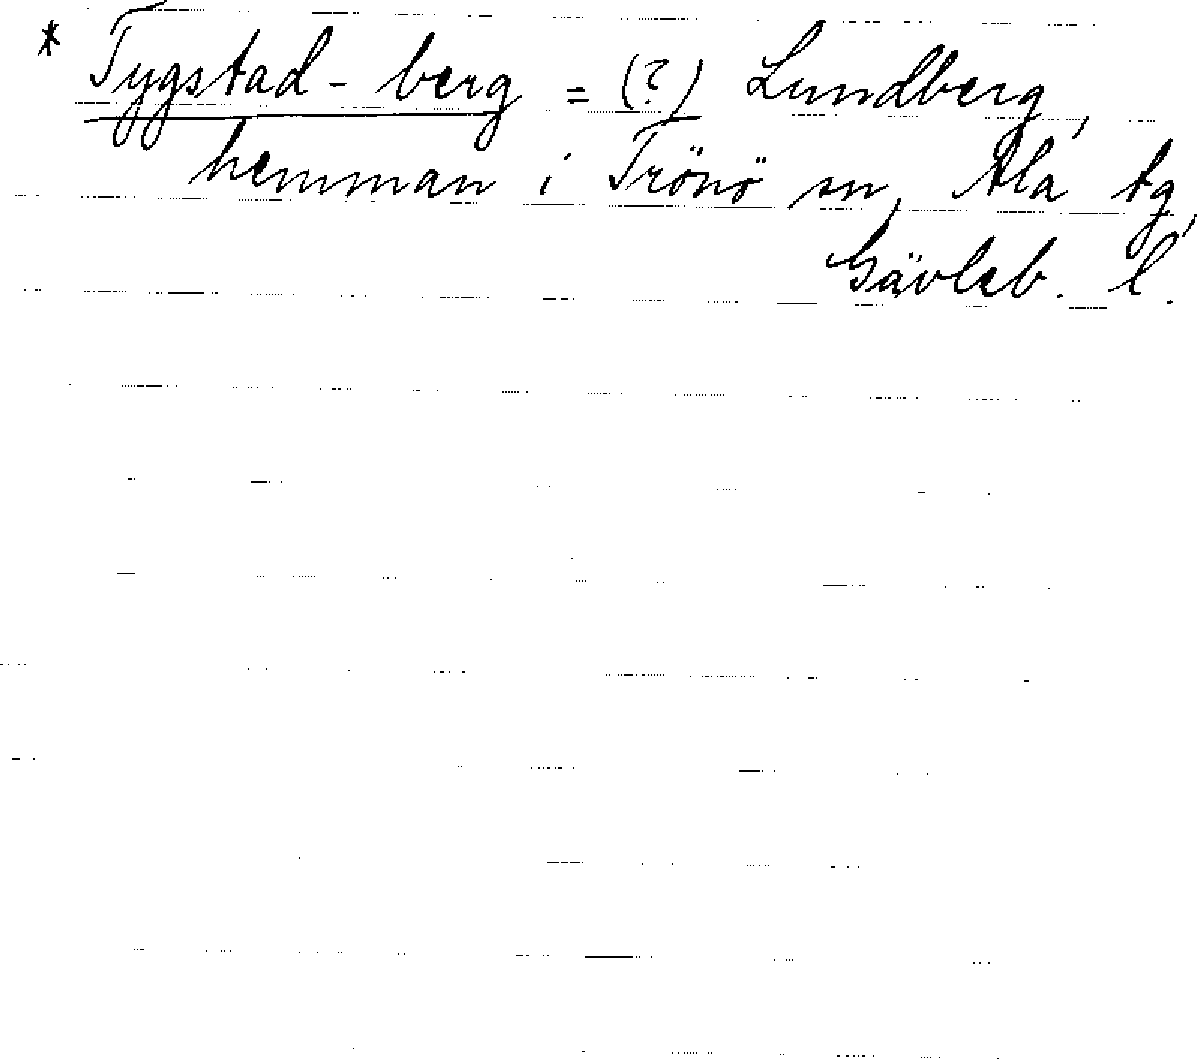 * Tygstad - berg = (?) Lundberg,
hemman i Trönö sn, Ala tg,
Gävleb. l.